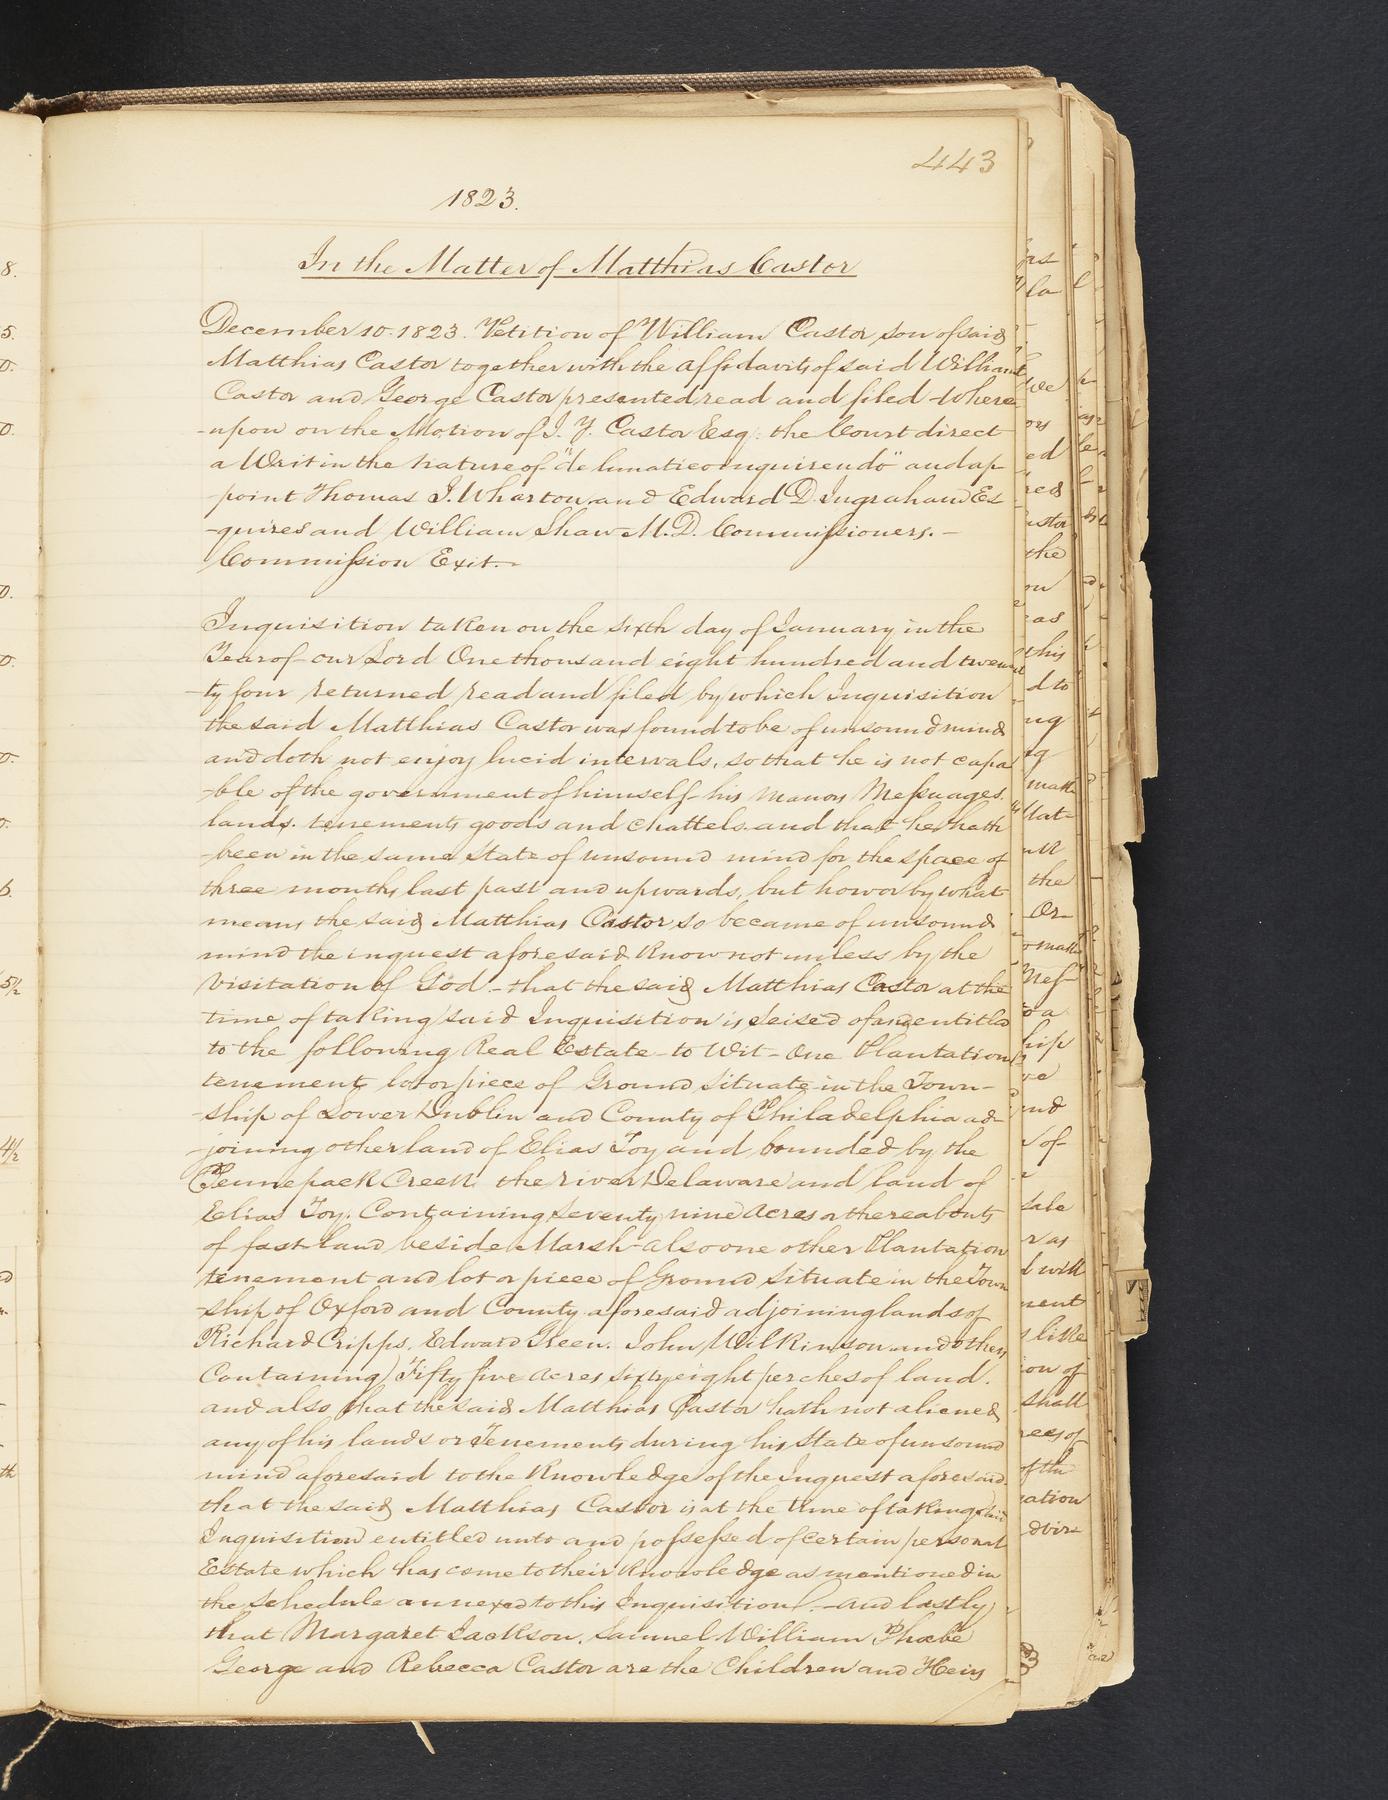 443
1823.
In the Matter of Matthias Castor
December 10. 1823. Petition of William Castor son of said
Matthias Castor together with the affidavits of said William
Castor and George Castor presented, read and filed - where
-upon on the Motion of J. Y. Castor Esq: the Court direct
a Writ in the nature of "de lunatico inquirendo" and ap-
-point Thomas I. Wharton and Edward D. Ingraham Es
-quires and William Shaw M.D. Commissioners. -
Commission Exit. -
Inquisition taken on the sixth day of January in the
Year of our Lord One thousand eight hundred and twen
-ty four returned read and filed by which Inquisition
the said Matthias Castor was found to be of unsound mind
and doth not enjoy lucid intervals, so that he is not capa
-ble of the government of himself his manors Messuages.
lands. tenements goods and chattels. and that he hath
-been in the same state of unsound mind for the space of
three months last past and upwards, but how or by what
means the said Matthias Castor so became of unsound
mind the inquest aforesaid Know not unless by the
Visitation of God. - that the said Matthias Castor at the
time of taking said Inquisition is Seised of and entitled
to the following Real Estate - to Wit - One Plantation
tenement lot or piece of Ground Situate in the Town-
-ship of Lower Dublin and County of Philadelphia ad-
-joining other land of Elias Toy and bounded by the
Pennepack Creek the river Delaware and land of
Elias Toy. Containing Seventy nine Acres or thereabouts
of fast land beside Marsh - also one other Plantation
tenement and lot or piece of Ground Situate in the Town
-ship of Oxford and County aforesaid adjoining lands of
Richard Cripps. Edward Green. John Wilkinson and others
Containing Fifty five acres sixty eight perches of land.
and also that the said Matthias Castor hath not aliened
any of his lands or Tenements during his State of unsound
mind aforesaid to the Knowledge of the Inquest aforesaid.
that the said Matthias Castor is at the time of taking said
Inquisition entitled unto and possessed of certain personal
Estate which has come to their Knowledge as mentioned in
the Schedule annexed to this Inquisition. - and lastly
that Margaret Jackson, Samuel William Phoebe
George and Rebecca Castor are the Children and Heirs